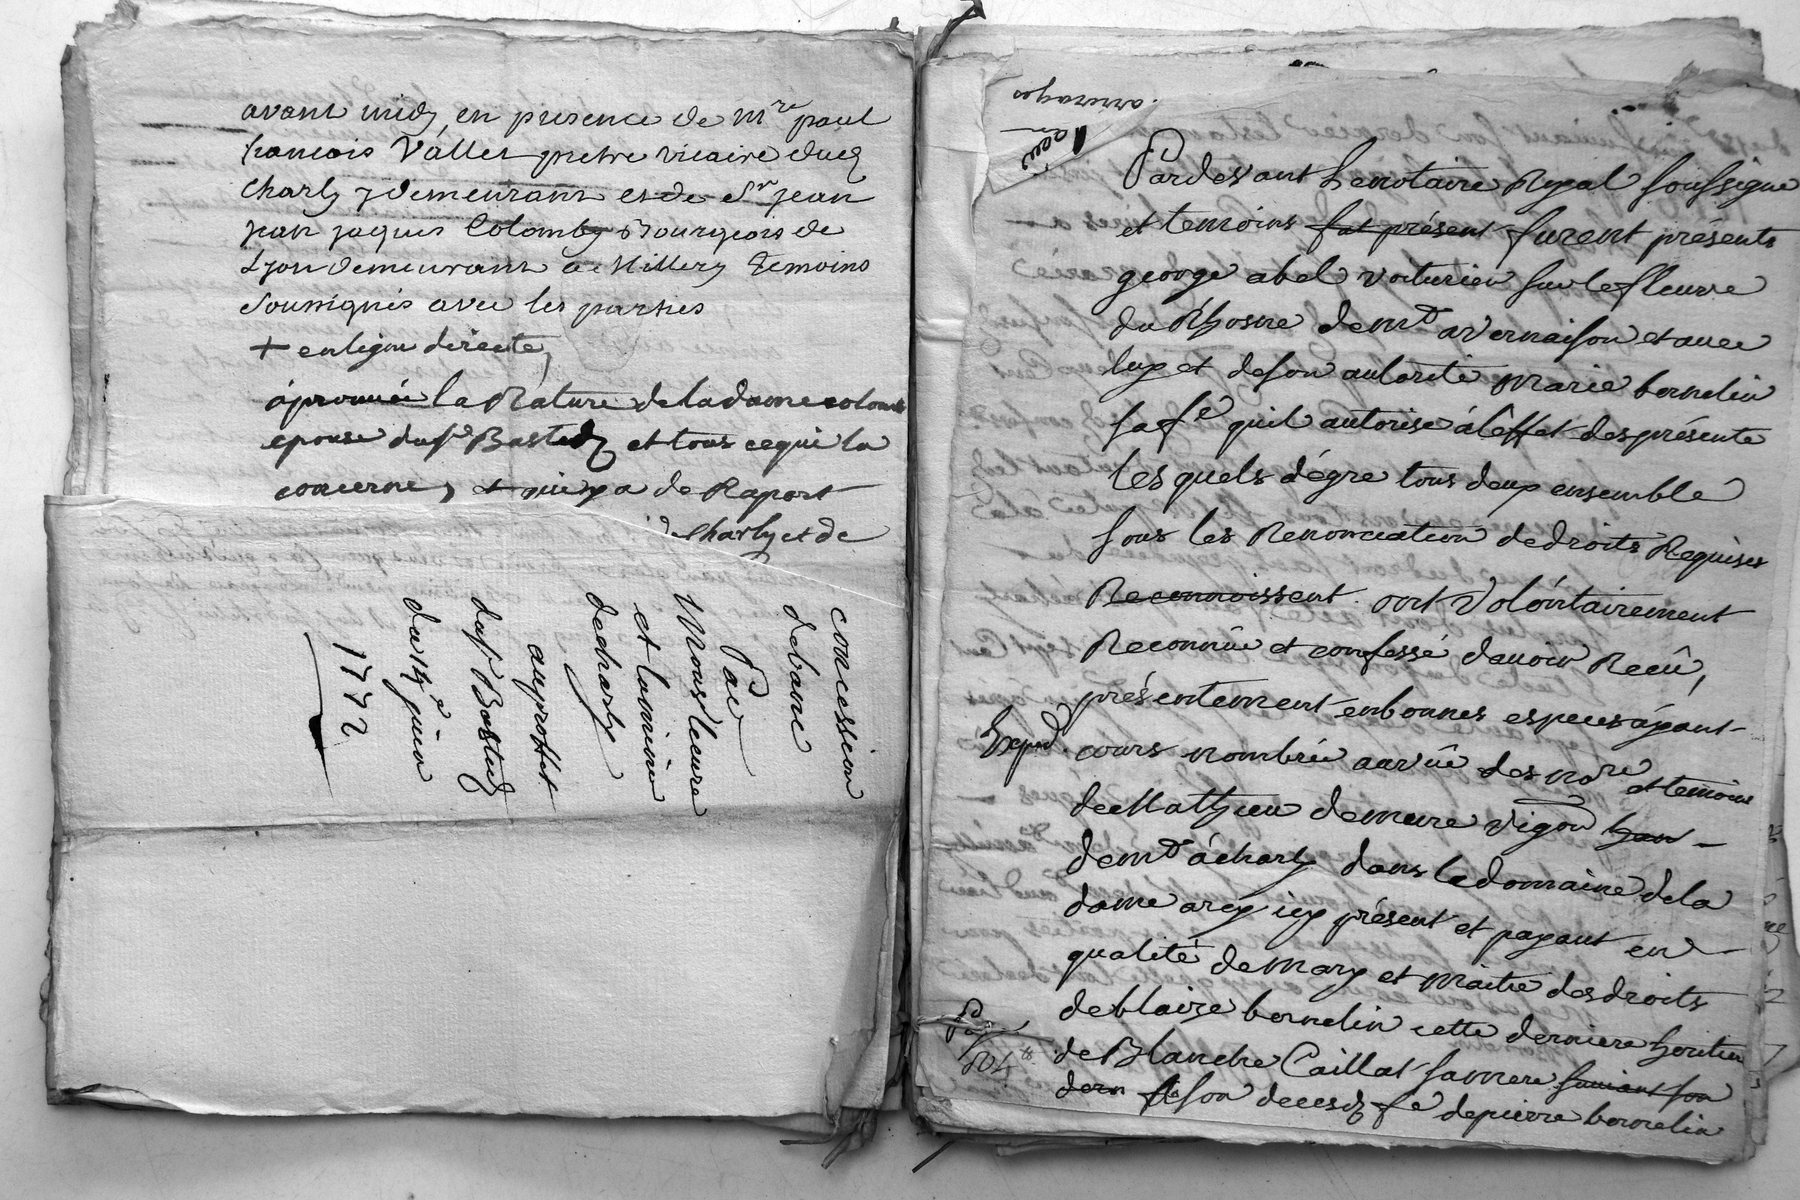 avant midy en presence de mre paul
francois Vallet pretre vicaire dud
Charly y demeurant et de Sr jean
jean jaques Colomby Bourgeois de
Lyon demeurant a Millery temoins
soussignés avec les parties
+ en ligne directe,
áprouvée la Rature de la dame colomb
epouse du sr Bastid et tous ce qui la
concerne, et qui y a de Raport
de Charly et de
concession
de banc
Par
Mons lecure
et luminier
de charly
au proffet
du sr Bastid
du 14e juin
1772
arrerages
Pardevant Le notaire Royal soussigné
et temoins fut présent furent présents
george abel voiturier sur le fleuve
du Rhosne demt a vernaison et avec
luy et de son autorité marie bornelin
sa fe quil autorise á l'effet des présente
les quels dégre tous deux ensemble
sous les Renonciation de droits Requises
Reconnoissent ont volóntairement
Reconnüe et confessé d'avoir Recû,
présentement en bonnes especes áyant
Exped. cours nombrée a la vüe des nore et temoins
de Mathieu demeure vigon
demt á charly dans le domaine de la
dame arcy icy présent et payant en
qualité de mary et maitre des droits
de blaize bornelin cette derniere heritier
de Blanche Caillat sa mere suivant son
dern son decesd fe de pierre bornelin